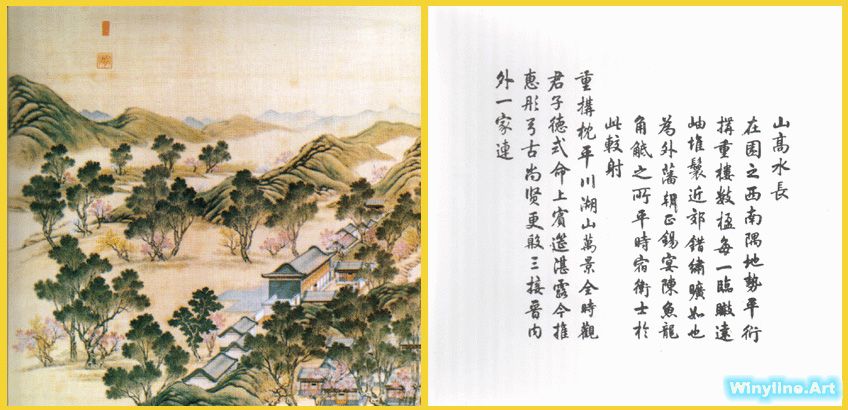 山高水長
在園之西南隅地勢平衍
搆重樓數楹每一臨瞰遠
岫堆鬟近郊錯繡曠如也
為外藩朝正錫宴陳魚龍
角觝之所平時宿衛士於
此較射
重搆枕平川湖山萬景全時觀
君子德式命上賓筵湛露今推
惠彤弓古尚賢更殷三接晉内
外一家連
Winyline.Art